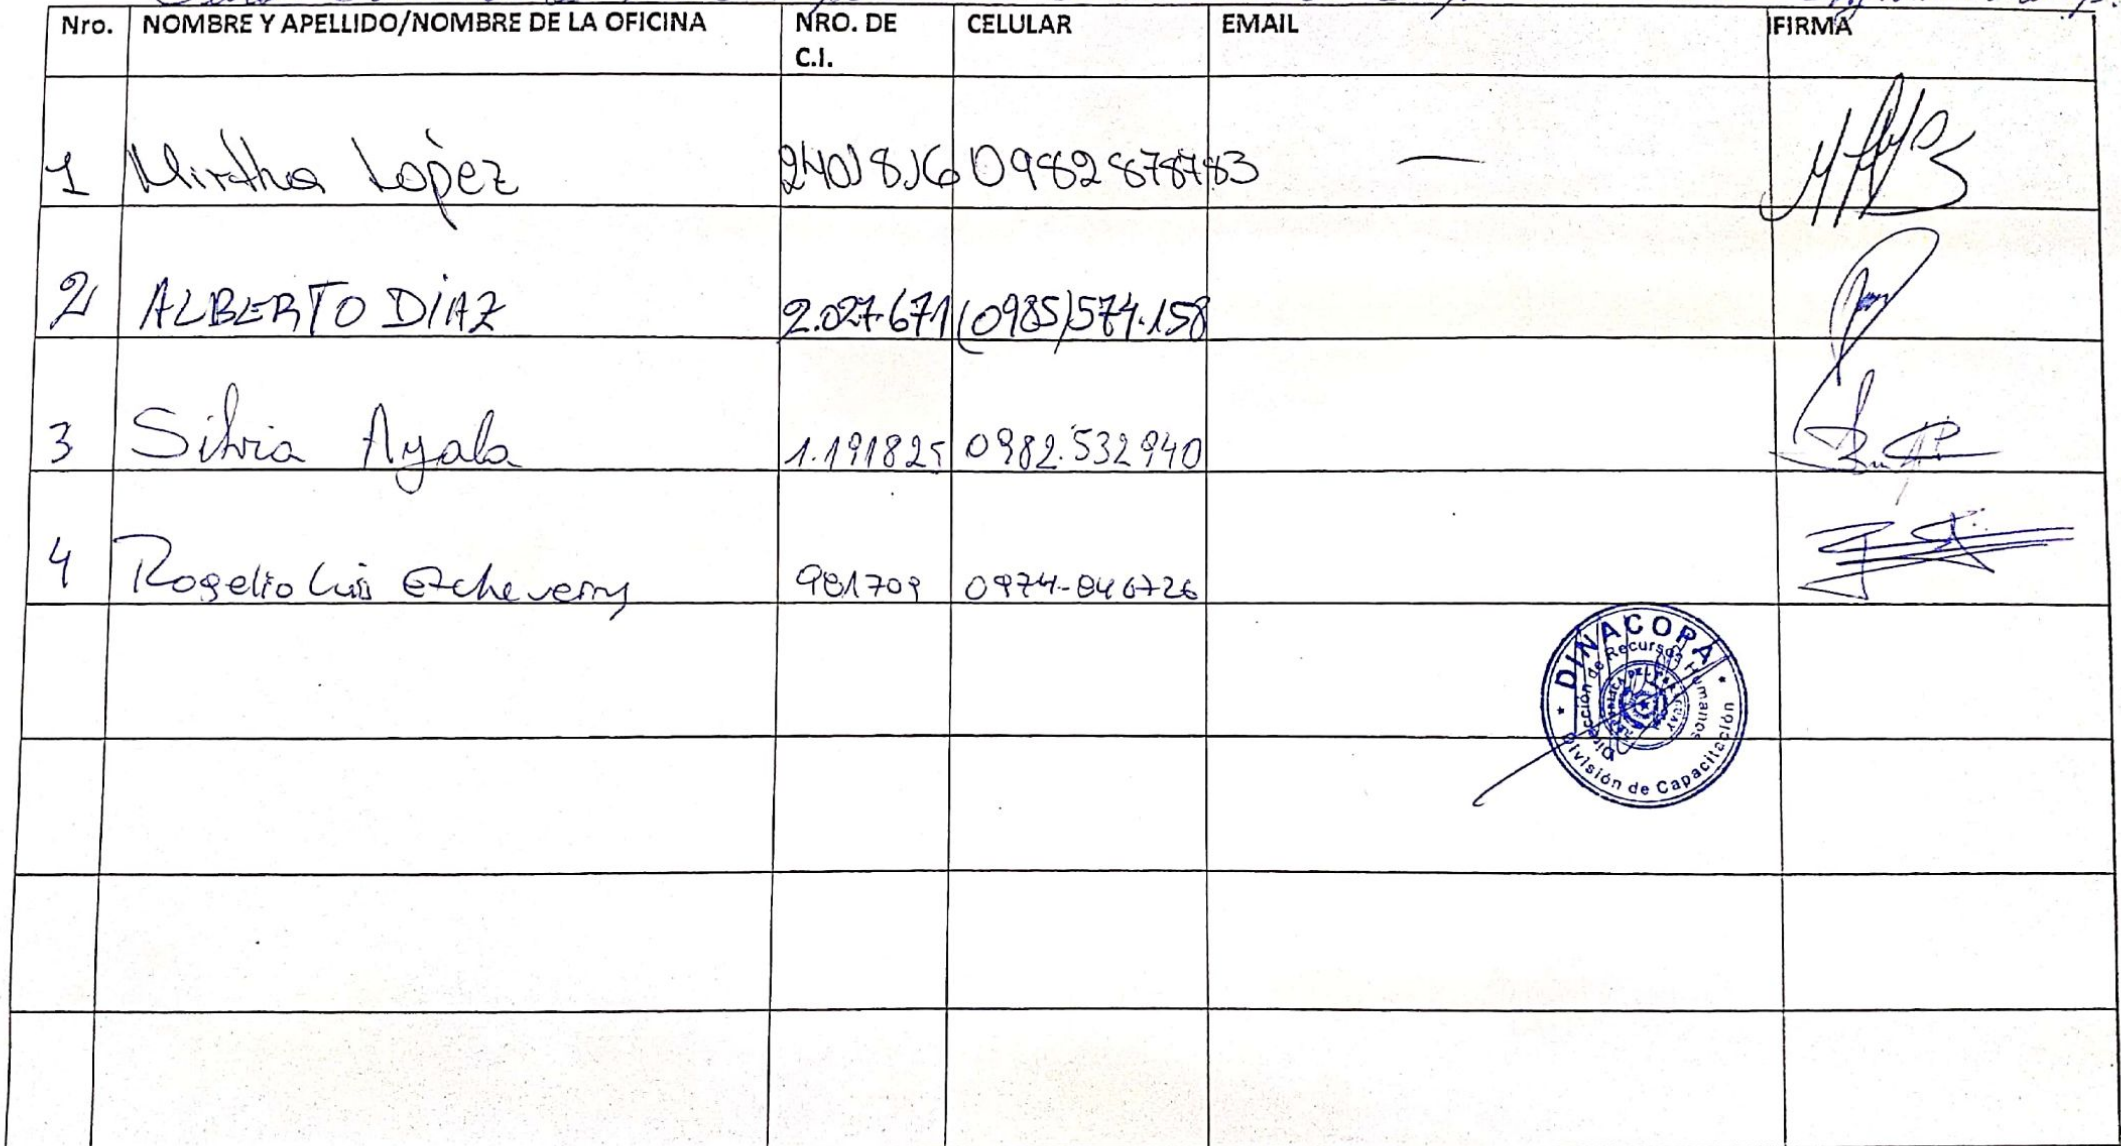 Nro. NOMBRE Y APELLIDO/NOMBRE DE LA OFICINA NRO. DE C.I. CELULAR EMAIL FIRMA
1 Mirtha López 2401816 0982878783 —
2 ALBERTO DÍAZ 2.027.671 (0985)574.158
3 Silvia Ayala 1.191825 0982.532940
4 Rogelio Luis Etcheverry 981709 0974-846726
DINACOPA
Dirección de Recursos Humanos
REPUBLICA DEL PARAGUAY
División de Capacitación